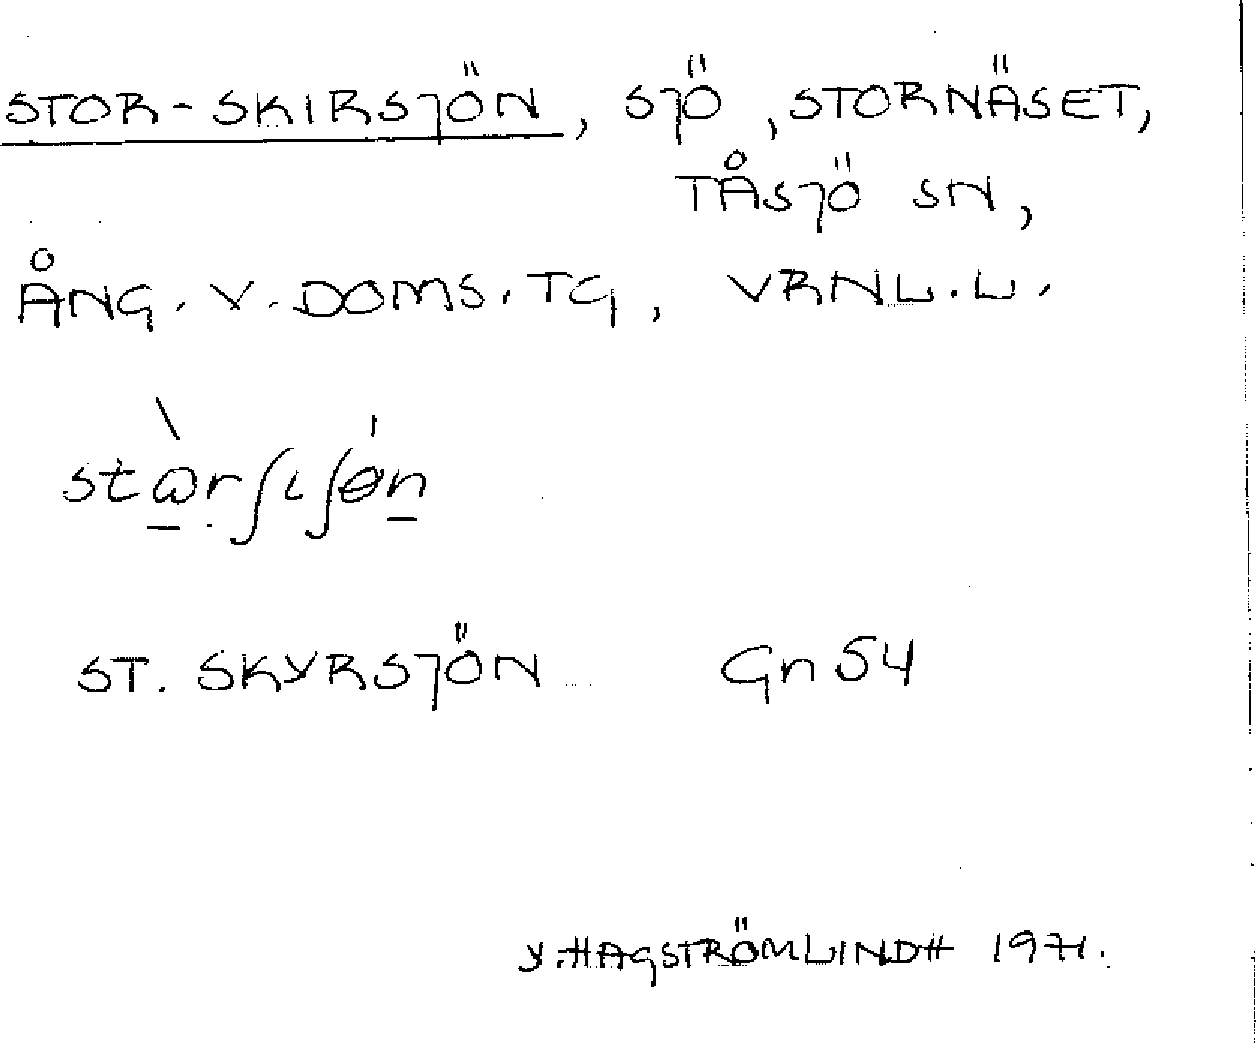 STOR-SKIRSJÖN, SJÖ, STORNÄSET,
TÅSJÖ SN,
ÅNG. V. DOMS. TG, VRNL. L.
ST. SKYRSJÖN Gn 54
Y. HAGSTRÖMLINDH 1971.